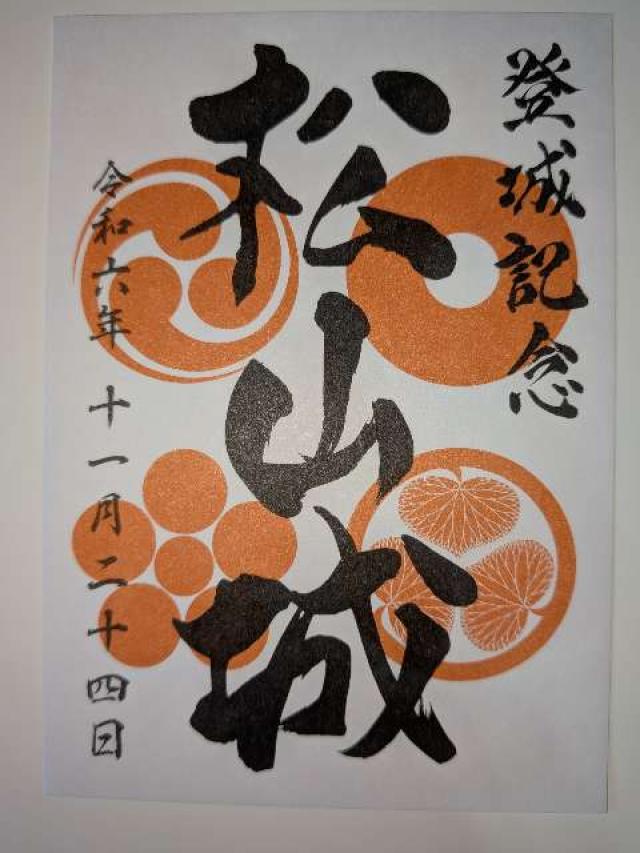 登城記念
松山城
令和六年 十一月二十四日